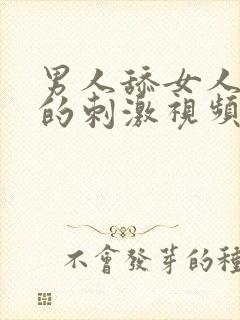 男人舔女人
的刺激視頻
不會發芽的種